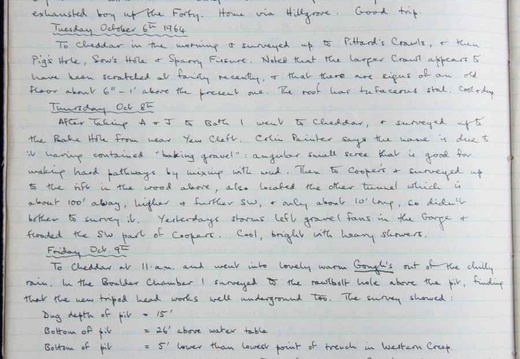 exhausted boy up the Forty. Home via Hillgrove. Good trip.
Tuesday October 6th 1964
To Cheddar in the morning & surveyed up to Pittard's Crawls, & then
Pig's Hole, Sow's Hole & Sparry Fissure. Noted that the larger Crawl appears to
have been scratched at fairly recently, & that there are signs of an old
floor about 6" - 1' above the present one. The roof has tufaceous stal. Cool & dry
Thursday Oct 8th
After taking A & J to Bath I went to Cheddar, & surveyed up to
the Bake Hole from near Yew Cleft. Colin Painter says the name is due to
it having contained "baking gravel": angular small scree that is good for
making hard pathways by mixing with mud. Then to Coopers & surveyed up
to the rift in the wood above, also located the other tunnel which is
about 100' away, higher & further SW, & only about 10' long, so didn't
bother to survey it. Yesterdays storms left gravel fans in the Gorge &
flooded the SW part of Coopers. Cool, bright with heavy showers.
Friday Oct. 9th
To Cheddar at 11 a.m. and went into lovely warm Gough's out of the chilly
rain. In the Boulder Chamber I surveyed to the rawlbolt hole above the pit, finding
that the new tripod head works well underground too. The survey showed:
Dug depth of pit = 15'
Bottom of pit = 26' above water table
Bottom of pit = 5' lower than lowest point of trench in Western Creep